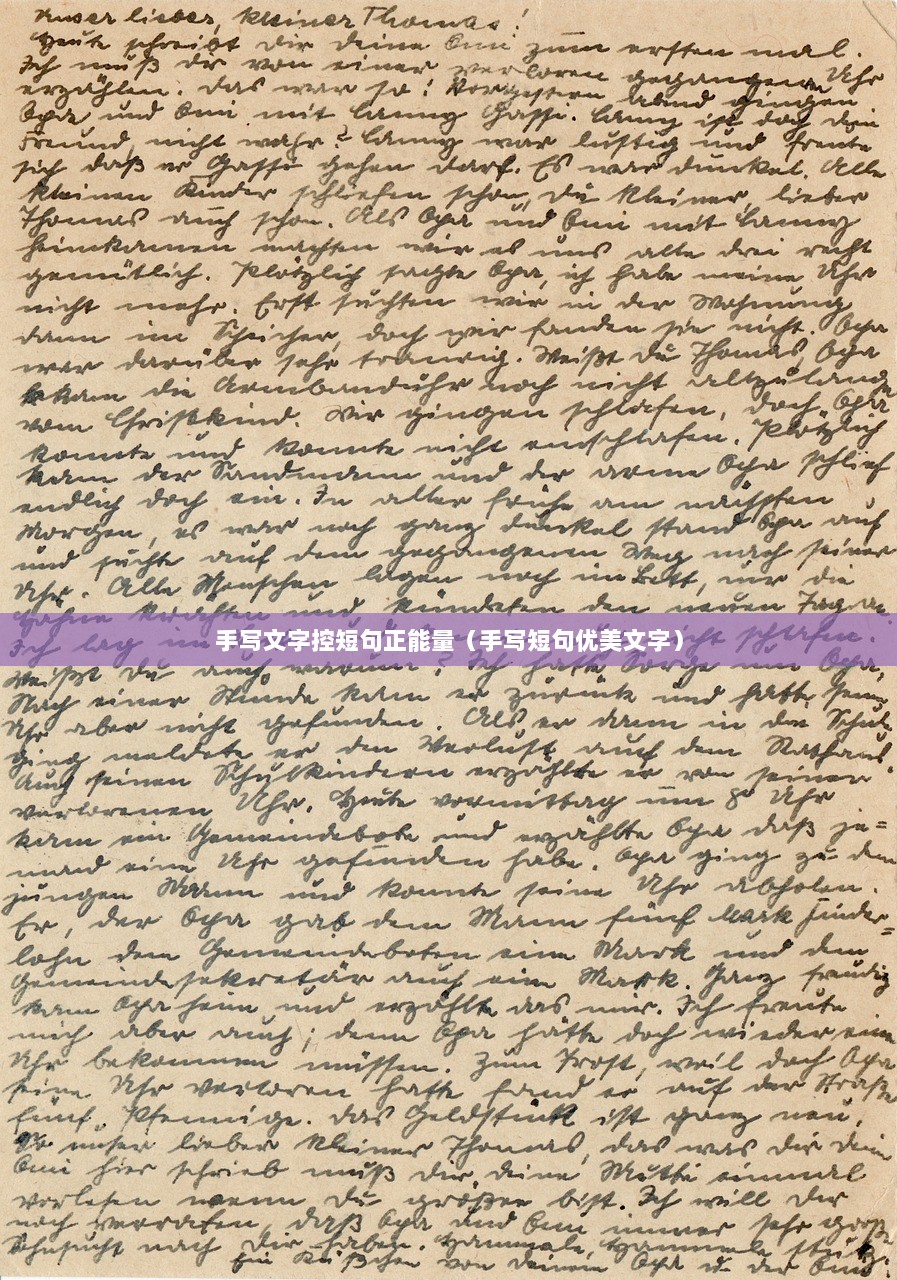 unser lieber, kleiner Thomas!
Heute schreibt dir deine Omi zum ersten mal.
Ich muß dir von einer verloren gegangenen Uhr
erzählen. Das war so! Vorgestern abend gingen
Opa und Omi mit Lanny Gassi. Lanny ist doch dein
Freund, nicht wahr? Lanny war lustig und freute
sich daß er Gassi gehen darf. Es war dunkel. Alle
kleinen Kinder schliefen schon, du kleiner, lieber
Thomas auch schon. Als Opa und Omi mit Lanny
heimkamen machten wir es uns alle drei recht
gemütlich. Plötzlich sagte Opa, ich habe meine Uhr
nicht mehr. Erst suchten wir in der Wohnung
dann im, doch wir fanden sie nicht. Opa
war darüber sehr traurig. Weißt du Thomas, Opa
bekam die Armbanduhr noch nicht allzulange
vom Christkind. Wir gingen schlafen, doch Opa
konnte und konnte nicht einschlafen. Plötzlich
kam der Sandmann und der arme Opa schlief
endlich doch ein. In aller frühe am nächsten
Morgen, es war noch ganz dunkel stand Opa auf
und suchte auf dem gegangenen Weg nach seiner
Uhr. Alle Menschen lagen noch im Bett, nur die
Hähne krähten und kündeten den neuen Tag an.
手写文字控短句正能量（手写短句优美文字）
Ich lag im nicht schlafen.
Weißt du auch warum? Ich hatte Sorge um Opa.
Nach einer Stunde kam er zurück und hatte seine
Uhr aber nicht gefunden. Als er dann in die Schule
ging meldete er den Verlust auf dem Rathaus.
Auch seinen Schulkindern erzählte er von seiner
verlorenen Uhr. Heute vormittag um 8° Uhr
kam ein Gemeindebote und erzählte Opa daß je=
mand eine Uhr gefunden habe. Opa ging zu dem
jungen Mann und konnte seine Uhr abholen.
Er, der Opa gab dem Mann fünf Mark Finder=
lohn dem Gemeindeboten eine Mark und dem
Gemeindesekretär auch eine Mark. Ganz freudig
kam Opa heim und erzählte das mir. Ich freute
mich aber auch; denn Opa hätte doch wieder eine
Uhr bekommen müssen. Zum Trost, weil doch Opa
seine Uhr verloren hatte fand er auf der Straße
fünf Pfennige. Das Geldstück ist ganz neu.
So unser lieber kleiner Thomas, das was dir deine
Omi hier schrieb muß dir deine Mutti einmal
vorlesen wenn du größer bist. Ich will dir
noch verraten, daß Opa und Omi immer sehr große
Sehnsucht nach Dir haben.
Ein Küßchen von deinem Opa u. der Omi